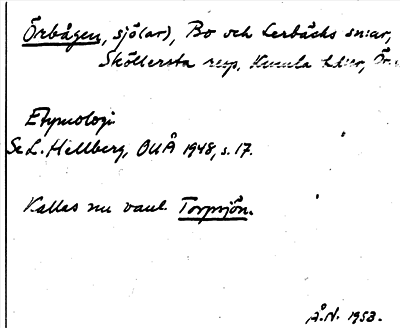 Örbågen, sjö(ar), Bo och Lerbäcks sn:ar,
Sköllersta resp. Kumla hd:er, Ör.
Etymologi
Se L. Hellberg, OUÅ 1948, s. 17.
Kallas nu vanl. Torpsjön.
Å.N. 1953.